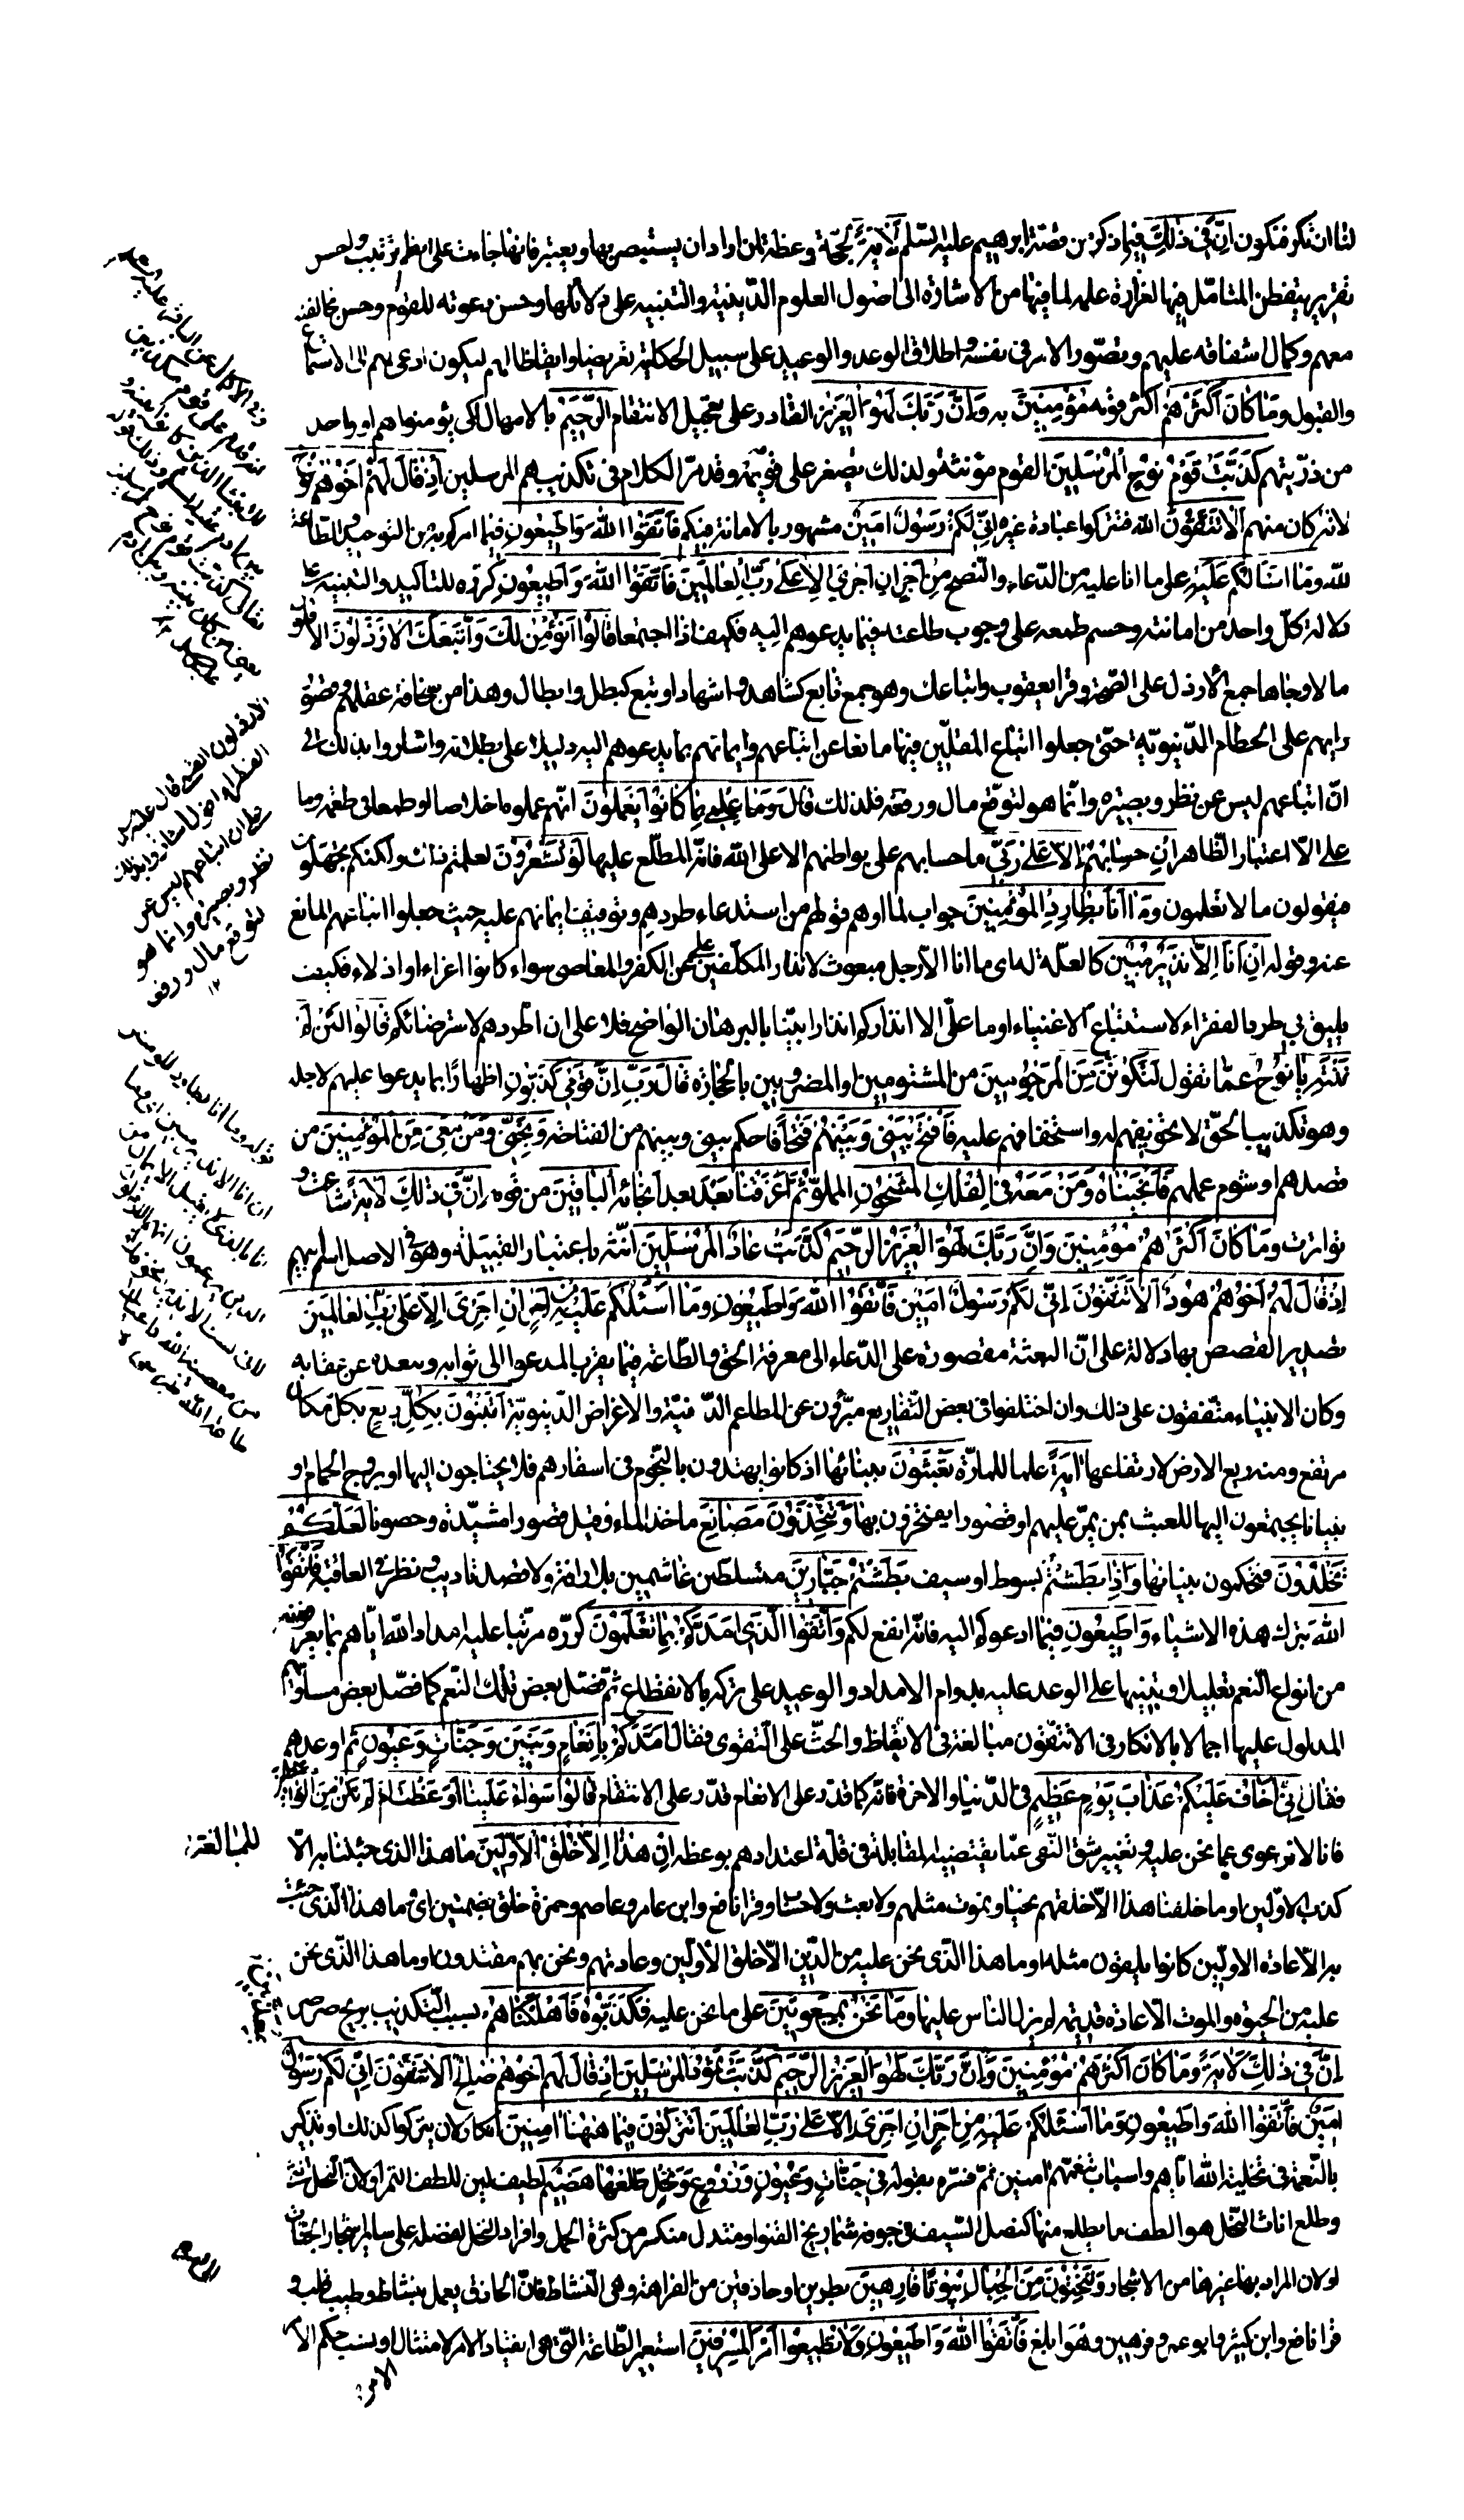 لنا ان نكر فنكون ان في ذلك فيما ذكر من قصة ابرهيم عليه السلم لاية لحجة وعظة لمن اراد ان يستبصر بها ويعتبر فانها جاءت على انظم ترتيب واحسن
تقرير يتفطن المتامل فيها لغزارة علمه لما فيها من الاشارة الى اصول العلوم الدينية والتنبيه على دلائلها وحسن دعوته للقوم وحسن مخالقته
معهم وكمال شفاقه عليهم وتصور الامر في نفسه واطلاق الوعد والوعيد على سبيل الحكاية تعريضا وايقاظا لهم ليكون ادعى لهم الى الاستماع
والقبول وما كان اكثرهم اكثر قومه مؤمنين به وان ربك لهو العزيز القادر على تعجيل الانتقام الرحيم بالامهال لكى يؤمنوا هم او واحد
من ذريتهم كذبت قوم نوح المرسلين القوم مؤنثة ولذلك يصغر على قويمة وقد مر الكلام في تكذيبهم المرسلين اذ قال لهم اخوهم نوح
لانه كان منهم الا تتقون الله فتتركوا عبادة غيره اني لكم رسول امين مشهور بالامانة فيكم فاتقوا الله واطيعون فيما امركم به من التوحيد والطاعة
لله وما اسئلكم عليه على ما انا عليه من الدعاء والنصح من اجر ان اجري الا على رب العالمين فاتقوا الله واطيعون كرره للتاكيد والتنبيه على
دلالة كل واحد من امانته وحسم طمعه على وجوب طاعته فيما يدعوهم اليه فكيف اذا اجتمعا قالوا انؤمن لك واتبعك الارذلون الاقلون
مالا وجاها جمع الارذل على الصحة وقرا يعقوب واتباعك وهو جمع تابع كشاهد واشهاد او تبع كبطل وابطال وهذا من سخافة عقلهم وقصور
رايهم على الحطام الدنيوية حتى جعلوا اتباع المقلين فيها مانعا عن اتباعهم وايمانهم بما يدعوهم اليه دليلا على بطلانه واشاروا بذلك الى
ان اتباعهم ليس عن نظر وبصيرة وانما هو لتوقع مال ورفعة فلذلك قال وما علمي بما كانوا يعملون انهم عملوه اخلاصا او طمعا في طعمة وما
علي الا اعتبار الظاهر ان حسابهم الا على ربي ما حسابهم على بواطنهم الا على الله فانه المطلع عليها لو تشعرون لعلمتم ذلك ولكنكم تجهلون
فتقولون ما لا تعلمون وما انا بطارد المؤمنين جواب لما اوهم قولهم من استدعاء طردهم وتوقيف ايمانهم عليه حيث جعلوا اتباعهم المانع
عنه وقوله ان انا الا نذير مبين كالعلة له اى ما انا الا رجل مبعوث لانذار المكلفين عن الكفر والمعاصي سواء كانوا اعزاء او اذلاء فكيف
يليق بي طرد الفقراء لاستتباع الاغنياء او ما علي الا انذاركم انذارا بينا بالبرهان الواضح فلا علي ان اطردهم لاسترضائكم قالوا لئن لم
تنته يا نوح عما تقول لتكونن من المرجومين من المشتومين او المضروبين بالحجارة قال رب ان قومي كذبون اظهارا بما يدعوا عليهم لاجله
وهو تكذيب الحق لا تخويفهم له واستخفافهم عليه فافتح بيني وبينهم فتحا فاحكم بيني وبينهم من الفتاحة ونجني ومن معي من المؤمنين من
قصدهم او شوم عملهم فانجيناه ومن معه في الفلك المشحون المملو ثم اغرقنا بعد بعد انجائه الباقين من قومه ان في ذلك لاية شاعت و
تواترت وما كان اكثرهم مؤمنين وان ربك لهو العزيز الرحيم كذبت عاد المرسلين انثه باعتبار القبيلة وهو في الاصل اسم ابيهم
اذ قال لهم اخوهم هود الا تتقون اني لكم رسول امين فاتقوا الله واطيعون وما اسئلكم عليه من اجر ان اجري الا على رب العالمين
تصدير القصص بها دلالة على ان البعثة مقصورة على الدعاء الى معرفة الحق والطاعة فيما يقرب المدعو الى ثوابه ويبعده عن عقابه
وكان الانبياء متفقون على ذلك وان اختلفوا في بعض التفاريع مبرؤن عن المطامع الدنية والاغراض الدنيوية اتبنون بكل ريع بكل مكان
مرتفع ومنه ريع الارض لارتفاعها اية علما للمارة تعبثون ببنائها اذ كانوا يهتدون بالنجوم في اسفارهم فلا يحتاجون اليها او بروج الحمام او
بنيانا يجتمعون اليها للعبث بمن يمر عليهم او قصورا يفتخرون بها وتتخذون مصانع ماخذ الماء وقيل قصورا مشيدة وحصونا لعلكم
تخلدون فتحكمون بنيانها واذا بطشتم بسوط او سيف بطشتم جبارين متسلطين غاشمين بلا رافة ولا قصد تاديب ونظر في العاقبة فاتقوا
الله بترك هذه الاشياء واطيعون فيما ادعوكم اليه فانه انفع لكم واتقوا الذي امدكم بما تعلمون كرره مرتبا عليه امداد الله اياهم بما يعرفونه
من انواع النعم تعليلا وتنبيها على الوعد عليه بدوام الامداد والوعيد على تركه بالانقطاع ثم فصل بعض تلك النعم كما فصل بعض مساويهم
المدلول عليها اجمالا بالانكار في الا تتقون مبالغة في الايقاظ والحث على التقوى فقال امدكم بانعام وبنين وجنات وعيون ثم اوعدهم
فقال اني اخاف عليكم عذاب يوم عظيم في الدنيا والاخرة فانه كما قدر على الانعام قدر على الانتقام قالوا سواء علينا اوعظت ام لم تكن من الواعظين
فانا لا نرعوى عما نحن عليه وتغيير شق النفي عما يقتضيه المقابلة في قلة اعتدادهم بوعظه ان هذا الا خلق الاولين ما هذا الذى جئتنا به الا
للمبالغة
كذب الاولين او ما خلقنا هذا الا خلقهم نحيا ونموت مثلهم ولا بعث ولا حساب وقرا نافع وابن عامر وعاصم وحمزة خلق بضمتين اى ما هذا الذى جئت
به الا عادة الاولين كانوا يلفقون مثله او ما هذا الذى نحن عليه من الدين الا خلق الاولين وعادتهم ونحن بهم مقتدون او ما هذا الذى نحن
عليه من الحيوة والموت الا عادة قديمة لم يزل الناس عليها وما نحن بمعذبين على ما نحن عليه فكذبوه فاهلكناهم بسبب التكذيب بريح صرصر
ان في ذلك لاية وما كان اكثرهم مؤمنين وان ربك لهو العزيز الرحيم كذبت ثمود المرسلين اذ قال لهم اخوهم صالح الا تتقون اني لكم رسول
امين فاتقوا الله واطيعون وما اسئلكم عليه من اجر ان اجري الا على رب العالمين اتتركون فيما ههنا امنين انكار لان يتركوا كذلك او تذكير
بالنعمة في تخلية الله اياهم واسباب تنعمهم امنين ثم فسره بقوله في جنات وعيون وزروع ونخل طلعها هضيم لطيف لين للطف الثمر او لان النخل انثى
وطلع اناث النخل هو الطف ما يطلع منها كنصل السيف في جوفه شماريخ القنو او متدل منكسر من كثرة الحمل وافراد النخل لفضله على ساير اشجار الجنات
او لان المراد بها غيرها من الاشجار وتنحتون من الجبال بيوتا فارهين بطرين او حاذقين من الفراهة وهى النشاط فان الحاذق يعمل بنشاط وطيب قلب و
قرا نافع وابن كثير وابو عمرو فرهين وهو ابلغ فاتقوا الله واطيعون ولا تطيعوا امر المسرفين استعير الطاعة التى هى انقياد الامر لامتثال او نسب حكم الامر
الارذلون
ان اتباعهم ليس عن
نظر وبصيرة وانما هو
لتوقع مال ورفعة